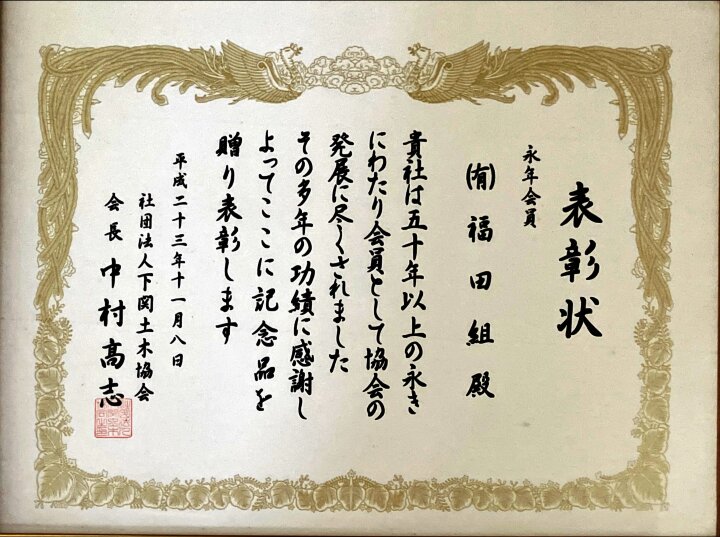 表彰状
永年会員
㈲福田組殿
貴社は五十年以上の永き
にわたり会員として協会の
発展に尽くされました
その多年の功績に感謝し
よってここに記念品を
贈り表彰します
平成二十三年十一月八日
社団法人下関土木協会
会長 中村高志